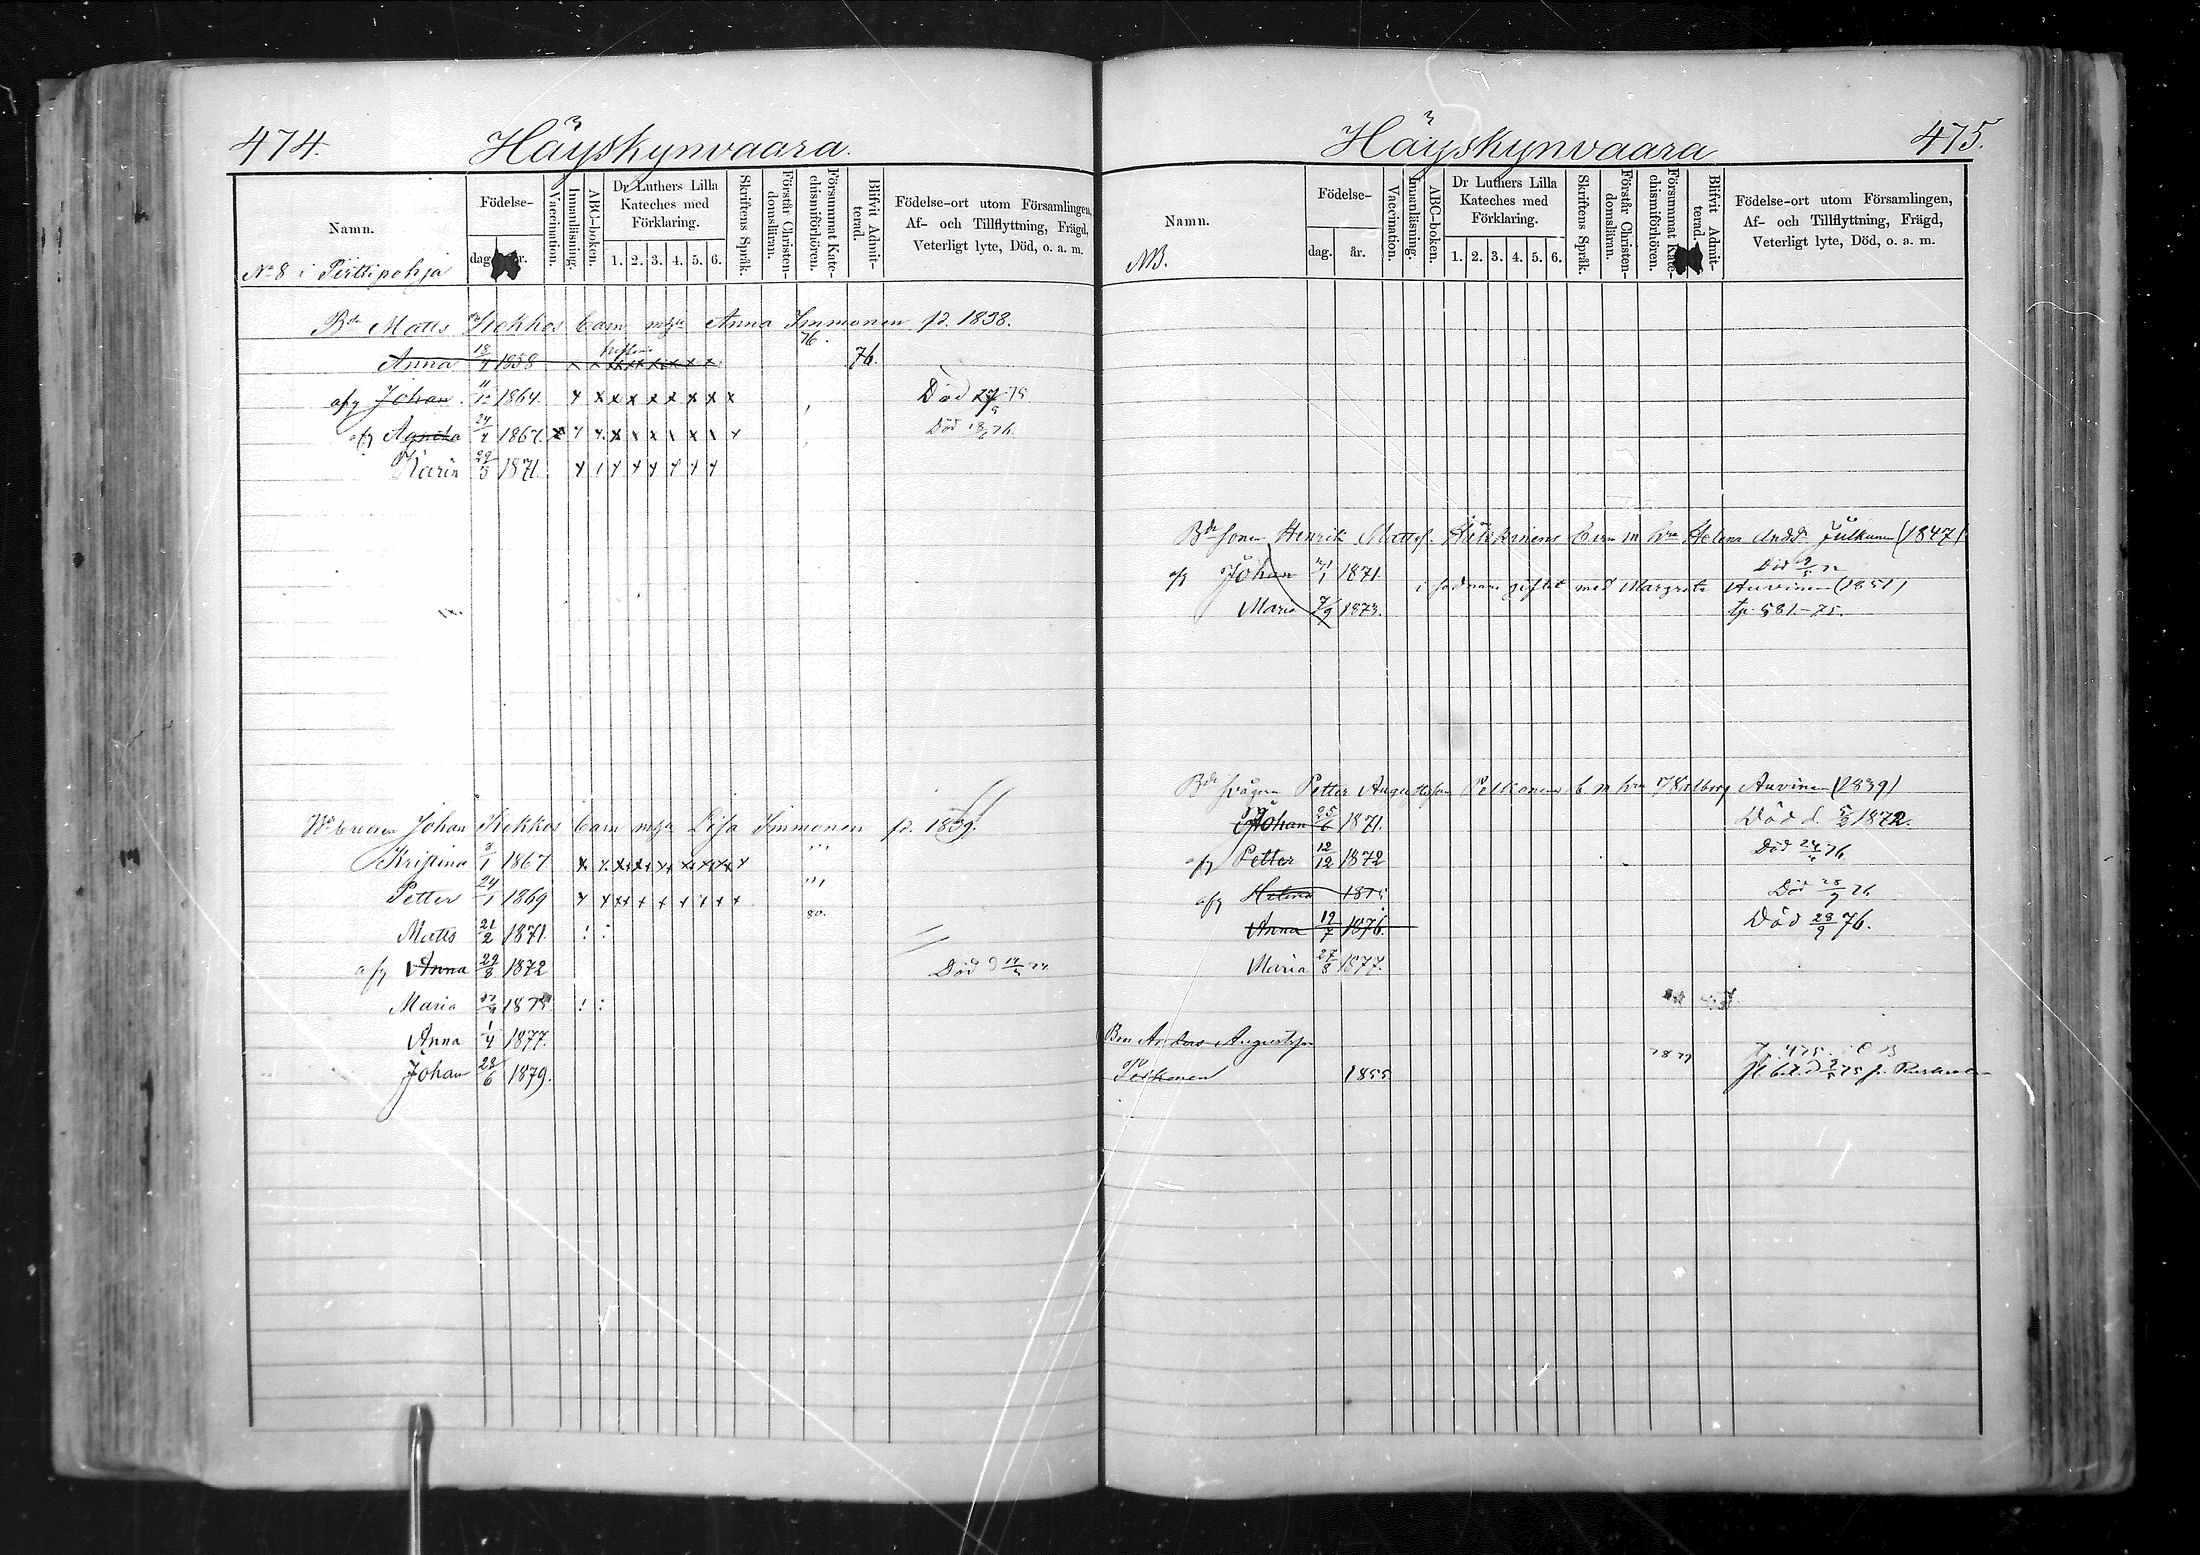 474.
Häyskynvaara.
Namn.
Födelse-
dag.
Vaccination.
Innanläsning.
ABC-boken.
Dr Luthers Lilla
Kateches med
Förklaring.
1. 2. 3. 4. 5. 6.
Skriftens Språk.
Förstår Christen-
domsläran.
Försummat Kate-
chismiförhören.
Blifvit Admit-
terad.
Födelse-ort utom Församlingen,
Af- och Tillflyttning, Frägd,
Veterligt lyte, Död, o. a. m.
No 8 i Perttipohja
Bde Matts Kokkos barn m hu Anna Immonen f. 1838.
76.
Anna 18/4 1858 x x x x x x x x 76.
afg Johan 1864. x x x x x x x x x Död 75
afg Agneta 24/4 1867. x x x x x x x x x Död 76.
Karin 29/3 1871. x x x x x x x x
Johan Kokkos barn m hu Lisa Immonen f. 1839.
Kristina 3/1 1867 x x x x x x x x x
Petter 24/1 1869 x x x x x x x x x
80.
Matts 21/2 1871. : :
afg Anna 29/8 1872 Död
Maria 1875 : :
Anna 1/4 1877.
Johan 28/6 1879.
Häyskynvaara
475.
Namn.
NB.
Födelse-
dag. år.
Vaccination.
Innanläsning.
ABC-boken.
Dr Luthers Lilla
Kateches med
Förklaring.
1. 2. 3. 4. 5. 6.
Skriftens Språk.
Förstår Christen-
domsläran.
Försummat Kate-
chismiförhören.
Blifvit Admit-
terad.
Födelse-ort utom Församlingen,
Af- och Tillflyttning, Frägd,
Veterligt lyte, Död, o. a. m.
Bde sonen Henrik Barn m hu Helena Andd Julkunen (1847)
afg Johan 1871. Död
giftet med Margreta Auvinen (1851)
Maria 7/9 1873. 581-75.
Bde svågern Petter Augustsson Pelkonens b. m hu Walborg Auvinen (1839)
Johan 25/6 1871. Död d. 5/3 1872.
afg Petter 12/12 1872 Död 76
afg Helena 1875. Död 76
Anna 19/7 1876. Död 29/9 76.
Maria 27/8 1877.
Anders Augustsson
Pelkonen 1855 1877